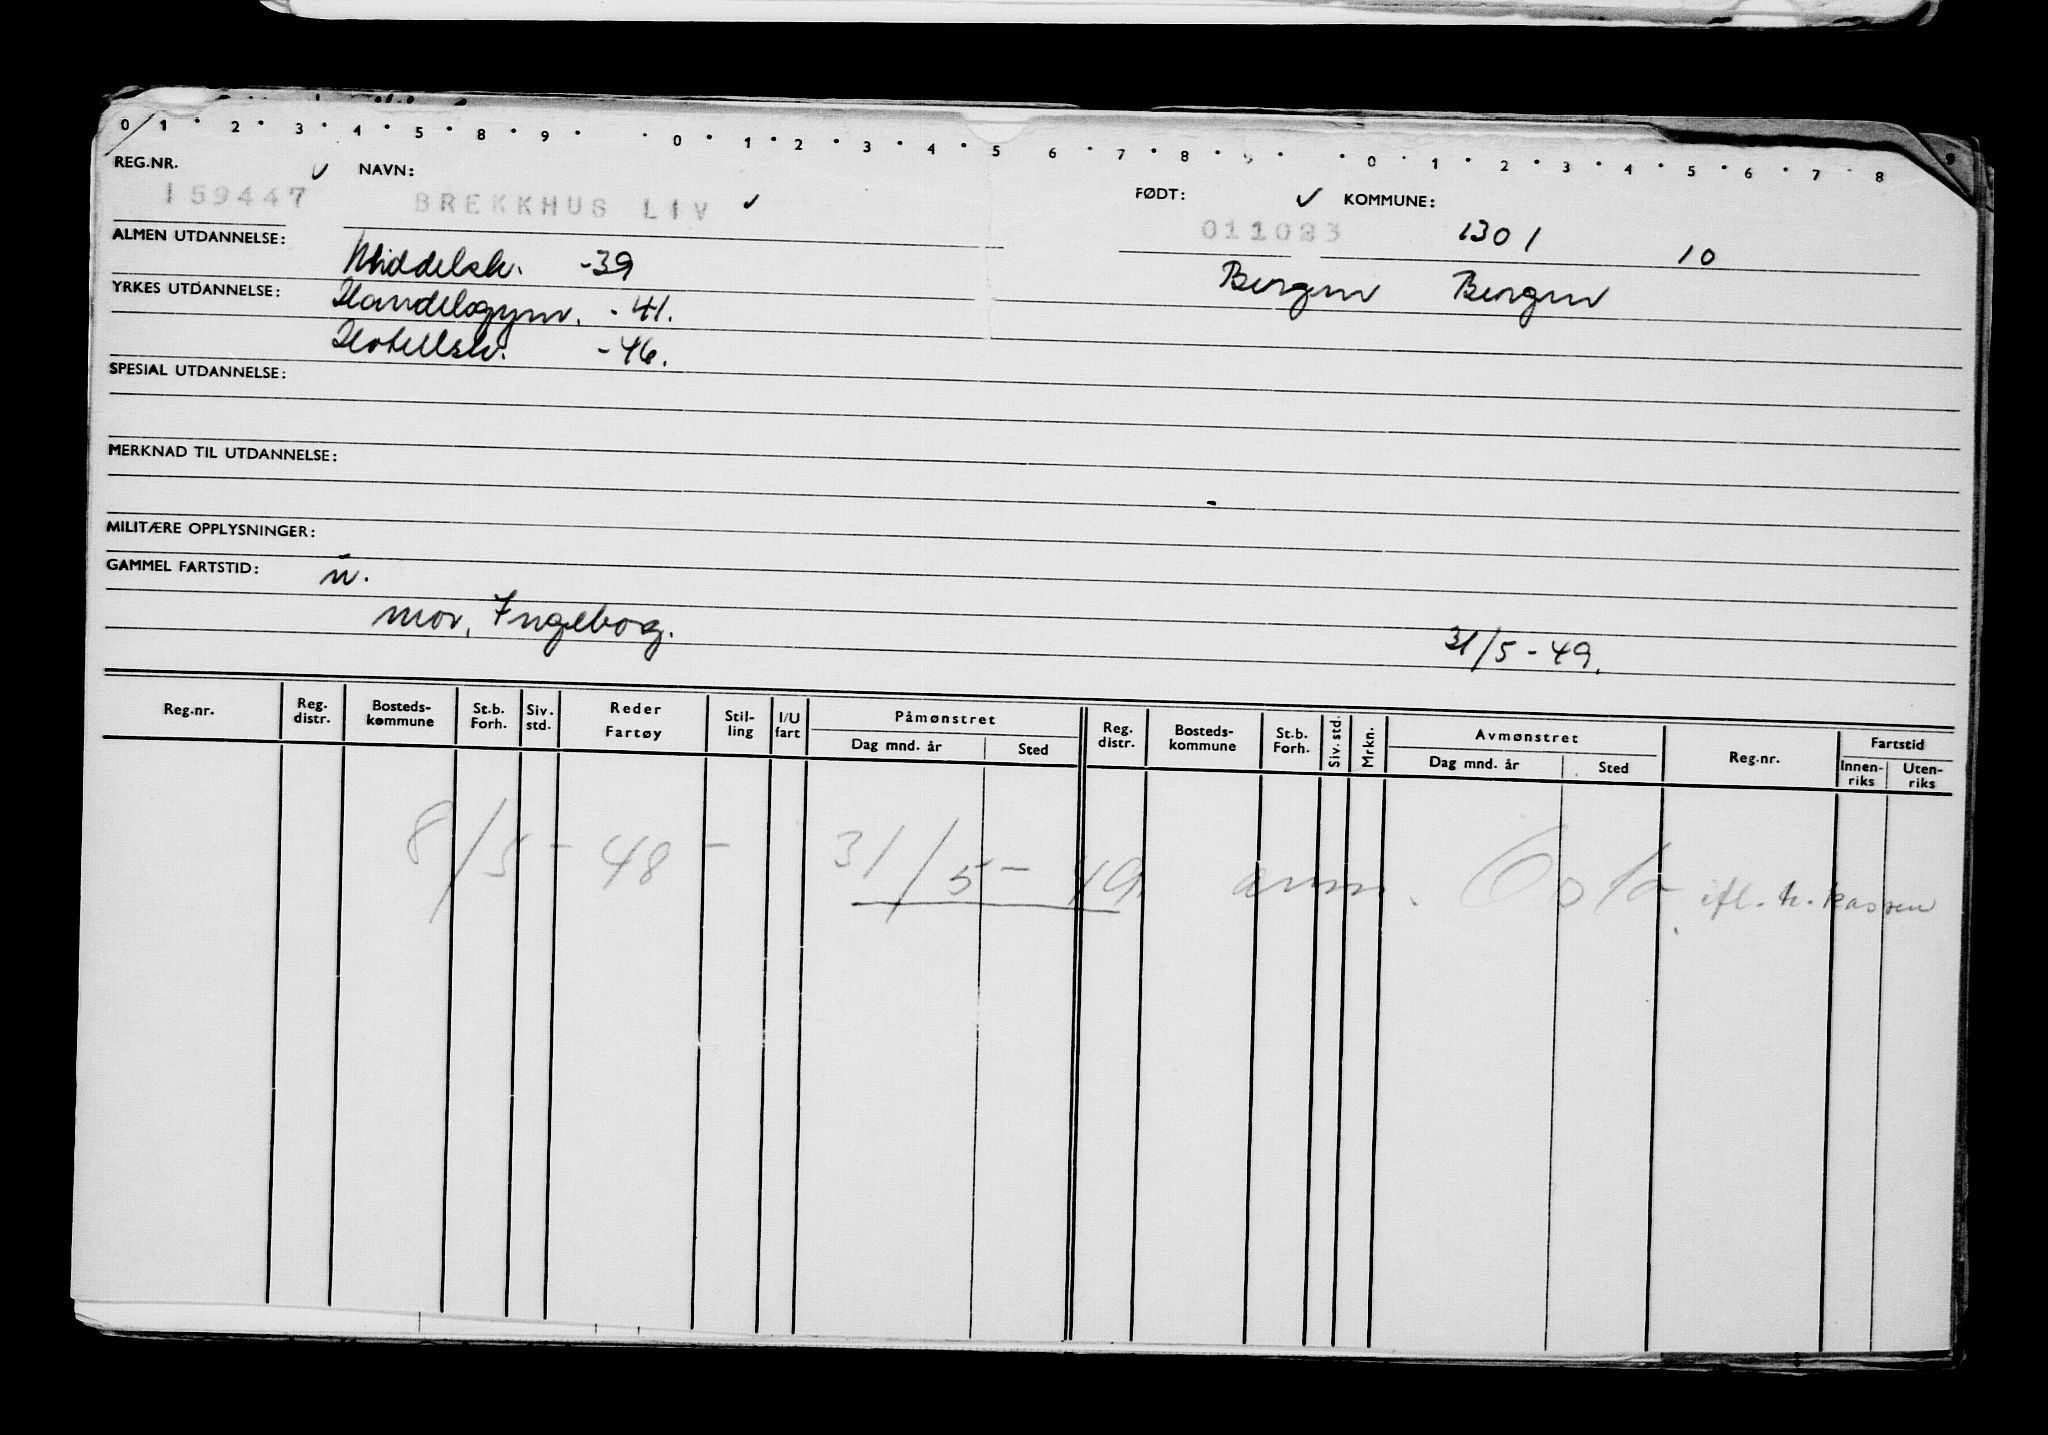 0 1 · 2 · 3 · 4 · 5 · 8 · 9 · · 0 · 1 · 2 · 3 · 4 · 5 6 · 7 · 8 · 9 · · 0 · 1 · 2 · 3 · 4 · 5 · 6 · 7 · 8 9
REG.NR. ✓ NAVN: FØDT: ✓ KOMMUNE:
159447 BREKKHUS LIV ✓ 011023 1301 10
ALMEN UTDANNELSE: Middelsk. -39 Bergen Bergen
YRKES UTDANNELSE: Handelsgym. -41.
Hotellsk. -46.
SPESIAL UTDANNELSE:
MERKNAD TIL UTDANNELSE:
MILITÆRE OPPLYSNINGER:
GAMMEL FARTSTID:
mor, Ingebog. 31/5-49.
Reg.nr. Reg. distr. Bosteds-kommune St.b. Forh. Siv. std. Reder Fartøy Stil-ling I/U fart Påmønstret Dag mnd. år Sted Reg. distr. Bosteds-kommune St.b. Forh. Siv. std. Mrkn. Avmønstret Dag mnd. år Sted Reg.nr. Fartstid Innen-riks Uten-riks
8/5-48 - 31/5-49 anm. Oslo ifl. tr. kassen